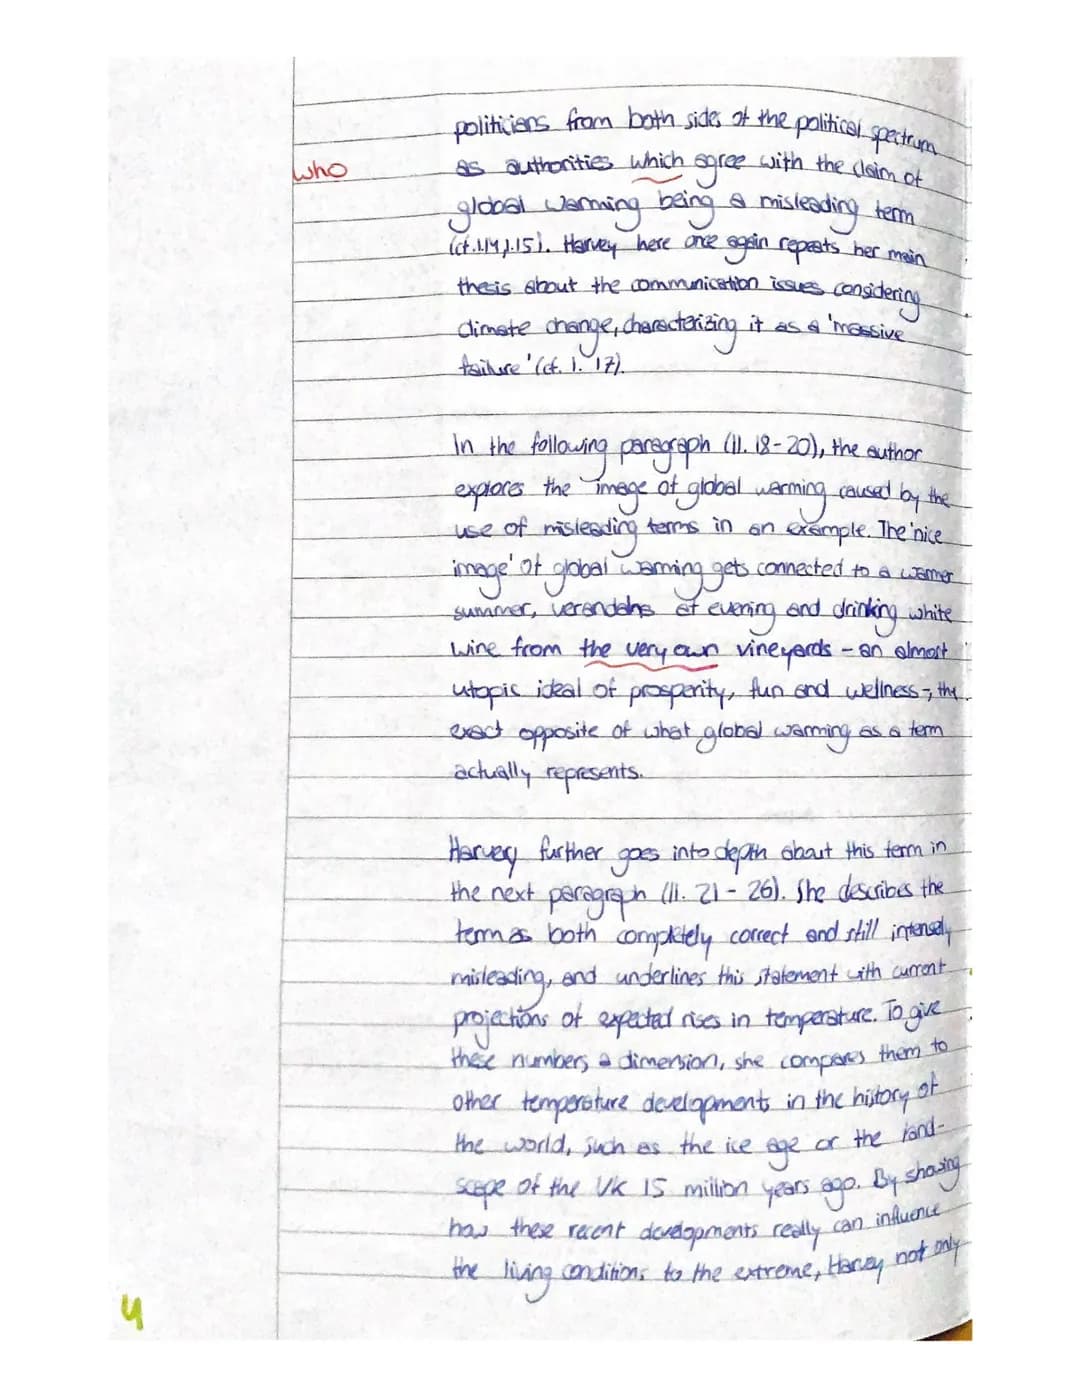 politicians from both sides of the political spectrum
who
as authorities which agree with the claim of
global warming being a misleading term
(cf. l.14, l.15). Harvey here once again repeats her main
thesis about the communication issues considering
climate change, characterizing it as a 'massive
failure' (cf. l. 17).
In the following paragraph (ll. 18-20), the author
explores the image of global warming caused by the
use of misleading terms in an example. The 'nice
image' of global warming gets connected to a warmer
summer, verandahs at evening and drinking white
wine from the very own vineyards - an almost
utopic ideal of prosperity, fun and wellness -, the
exact opposite of what global warming as a term
actually represents.
Harvey further goes into depth about this term in
the next paragraph (ll. 21 - 26). She describes the
term as both completely correct and still intensely
misleading, and underlines this statement with current
projections of expected rises in temperature. To give
these numbers a dimension, she compares them to
other temperature developments in the history of
the world, such as the ice age or the land-
scape of the UK 15 million years ago. By showing
how these recent developments really can influence
the living conditions to the extreme, Harvey not only
4